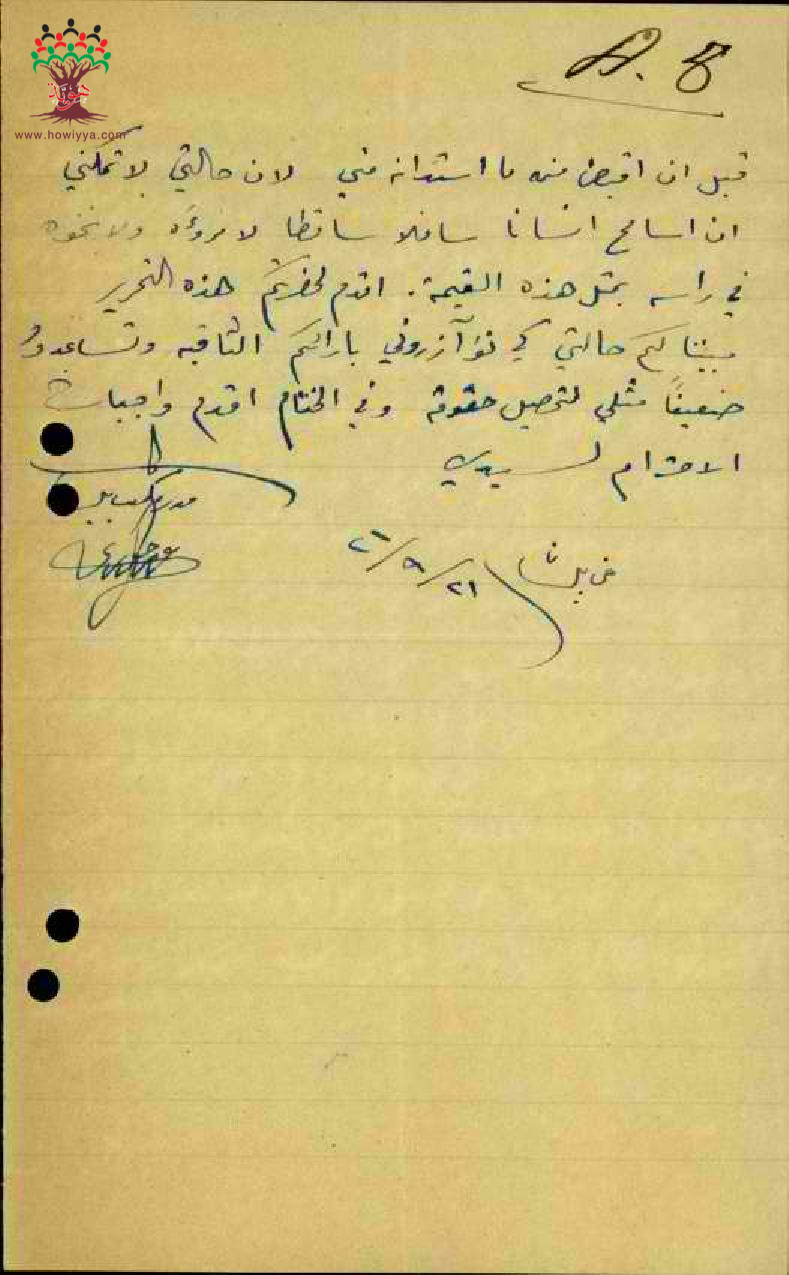 هوية
www.howiyya.com
A. 8
قبل ان اقبض منه ما استدانه مني لان حالتي لا تمكنني
ان اسامح انسانا سافلا ساقطا لا مروءه ولا نخوه
في راسه بمثل هذه القيمة. اقدم لحضرتكم هذه التحرير
مبينا لكم حالتي كي تؤآزروني بارائكم الثاقبه وتساعدوا
ضعيفاً مثلي لتحصيل حقوقه وفي الختام اقدم واجبات
الاحترام لسيدي
٢١/٩/٢٦